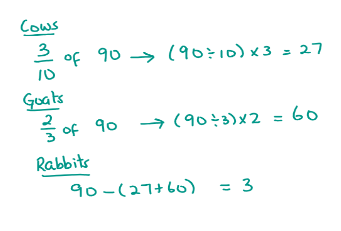 Cows
3/10 of 90 → (90÷10) × 3 = 27
Goats
2/3 of 90 → (90÷3) × 2 = 60
Rabbits
90 – (27+60) = 3